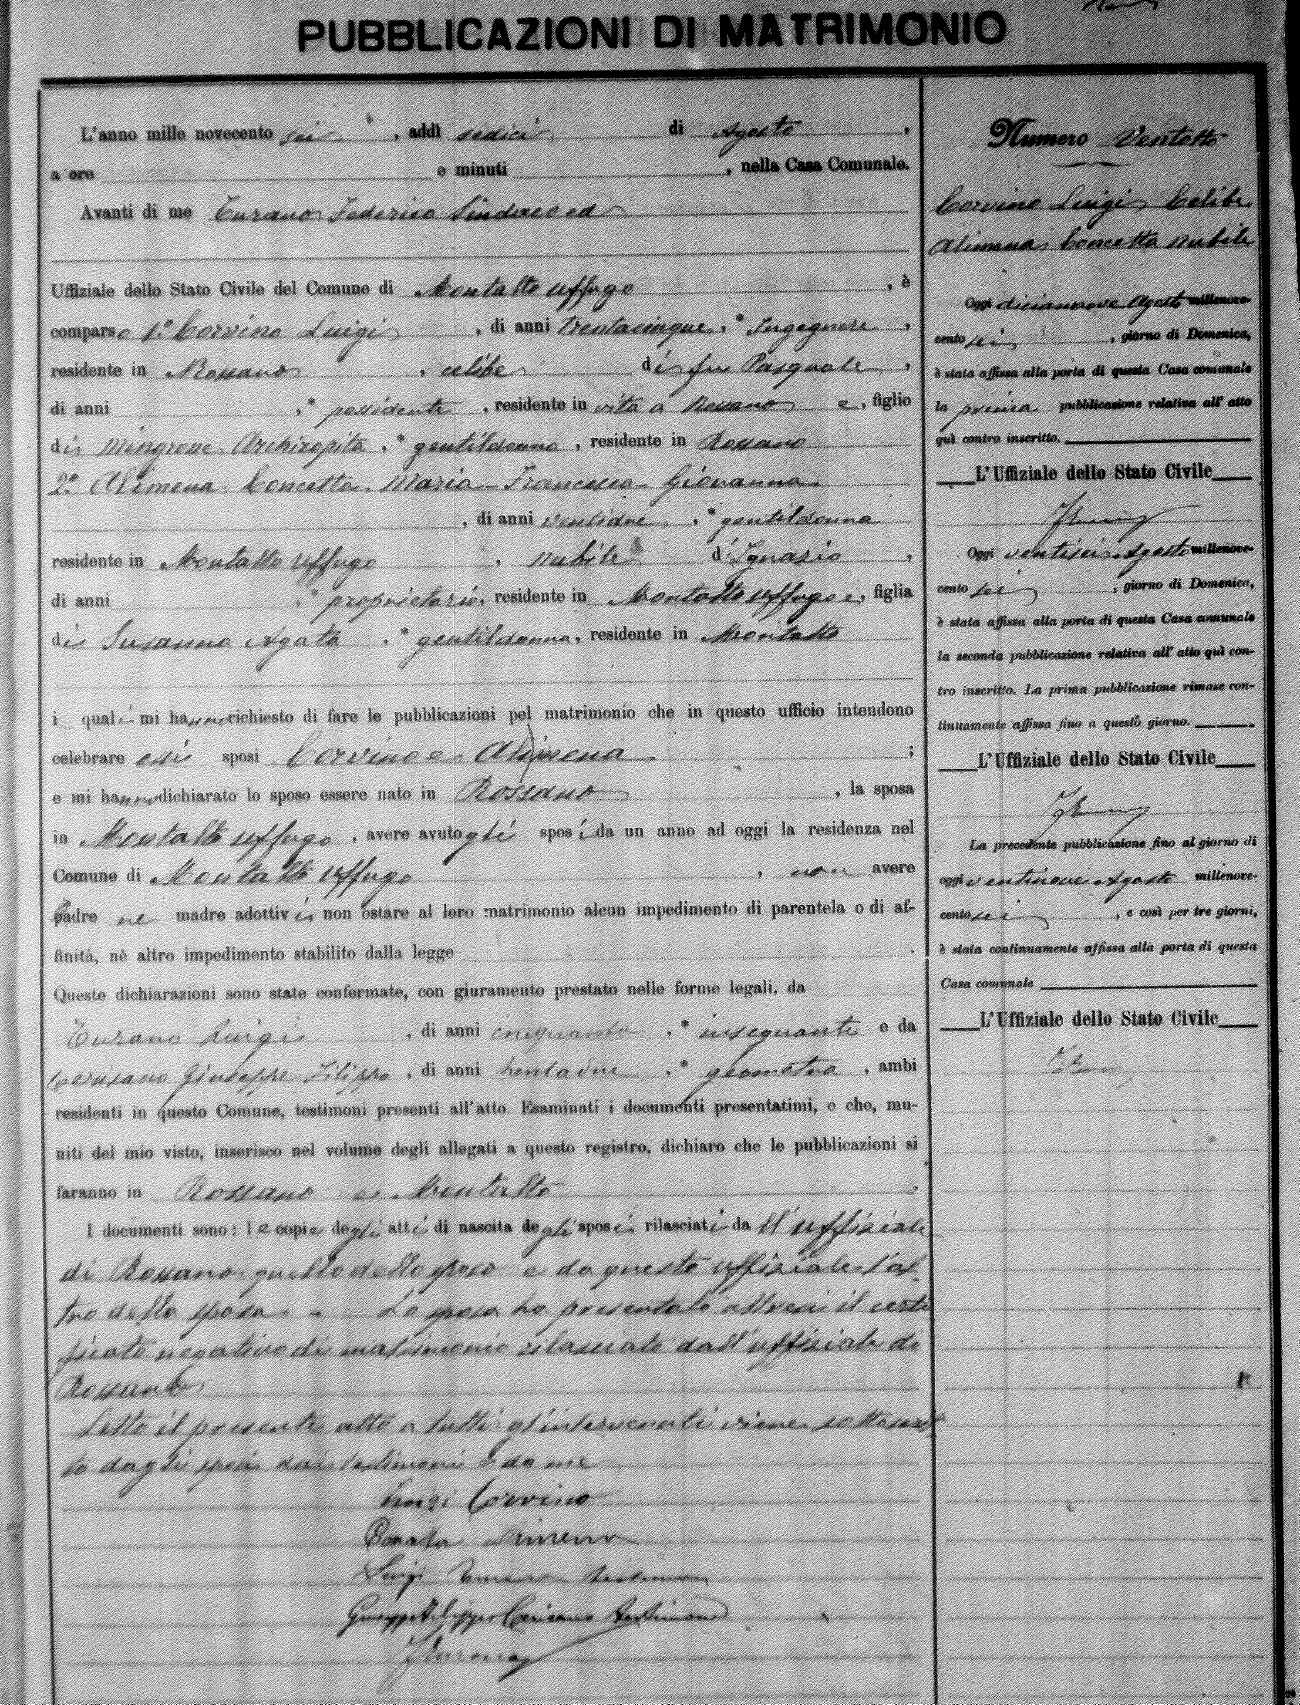 PUBBLICAZIONI DI MATRIMONIO
L'anno mille novecento sei, addì sedici di Agosto,
a ore e minuti, nella Casa Comunale.
Avanti di me Turano Federico Sindaco ed
Uffiziale dello Stato Civile del Comune di Montalto Uffugo, è
comparso 1.° Corvino Luigi, di anni trentacinque, * Ingegnere,
residente in Rossano, celibe di fu Pasquale,
di anni, * possidente, residente in vita a Rossano e, figlio
di Mingrone Archiropita, * gentildonna, residente in Rossano
2.° Alimena Concetta Maria Francesca Giovanna
, di anni ventidue, * gentildonna
residente in Montalto Uffugo, nubile di Ignazio,
di anni, * proprietario, residente in Montalto Uffugo e, figlia
di Susanna Agata, * gentildonna, residente in Montalto
i quali mi hanno richiesto di fare le pubblicazioni pel matrimonio che in questo ufficio intendono
celebrare essi sposi Corvino e Alimena;
e mi hanno dichiarato lo sposo essere nato in Rossano, la sposa
in Montalto Uffugo, avere avuto gli sposi da un anno ad oggi la residenza nel
Comune di Montalto Uffugo, non avere
padre ne madre adottivi non ostare al loro matrimonio alcun impedimento di parentela o di af-
finità, nè altro impedimento stabilito dalla legge.
Queste dichiarazioni sono state confermate, con giuramento prestato nelle forme legali, da
Turano Luigi, di anni cinquanta, * insegnante e da
Giuseppe Filippo, di anni trentadue, * geometra, ambi
residenti in questo Comune, testimoni presenti all'atto. Esaminati i documenti presentatimi, e che, mu-
niti del mio visto, inserisco nel volume degli allegati a questo registro, dichiaro che le pubblicazioni si
faranno in Rossano e Montalto
I documenti sono: le copie degli atti di nascita degli sposi rilasciati da ll'uffiziale
di Rossano quello dello sposo e da questo uffiziale l'al-
tro della sposa. La sposa ha presentato altresì il certi
ficato negativo di matrimonio rilasciato dall'uffiziale di
Rossano
Letto il presente atto a tutti gl'intervenuti viene sottoscrit
to dagli sposi dai testimoni e da me
Luigi Corvino
Alimena
Luigi Turano testimone
Giuseppe Filippo testimone
FTurano
Numero Ventotto
Corvino Luigi Celibe
Alimena Concetta nubile
Oggi diciannove Agosto millenove-
cento sei, giorno di Domenica,
è stata affissa alla porta di questa Casa comunale
la prima pubblicazione relativa all'atto
quì contro inscritto.
L'Uffiziale dello Stato Civile
Oggi ventisei Agosto millenove-
cento sei, giorno di Domenica,
è stata affissa alla porta di questa Casa comunale
la seconda pubblicazione relativa all'atto quì con-
tro inscritto. La prima pubblicazione rimase con-
tinuamente affissa fino a questo giorno.
L'Uffiziale dello Stato Civile
La precedente pubblicazione fino al giorno di
oggi ventinove Agosto millenove-
cento sei, e così per tre giorni,
è stata continuamente affissa alla porta di questa
Casa comunale
L'Uffiziale dello Stato Civile